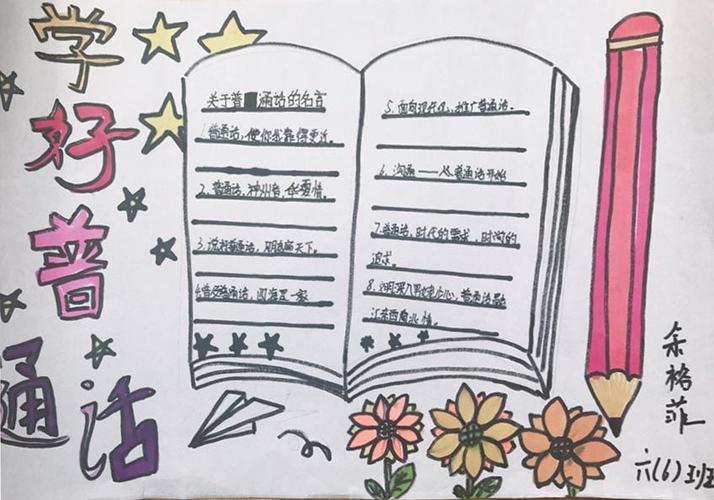 学好普通话
关于普通话的名言
1.普通话,使你我靠得更近。
2.普通话,神州音,华夏情。
3.说好普通话,朋友遍天下。
4.普及普通话,四海是一家
5.面向现代化,推广普通话。
6.沟通——从普通话开始
7.普通话,时代的需求,时间的
追求。
8.心,普通话
东西南北情。
余格菲
六(6)班